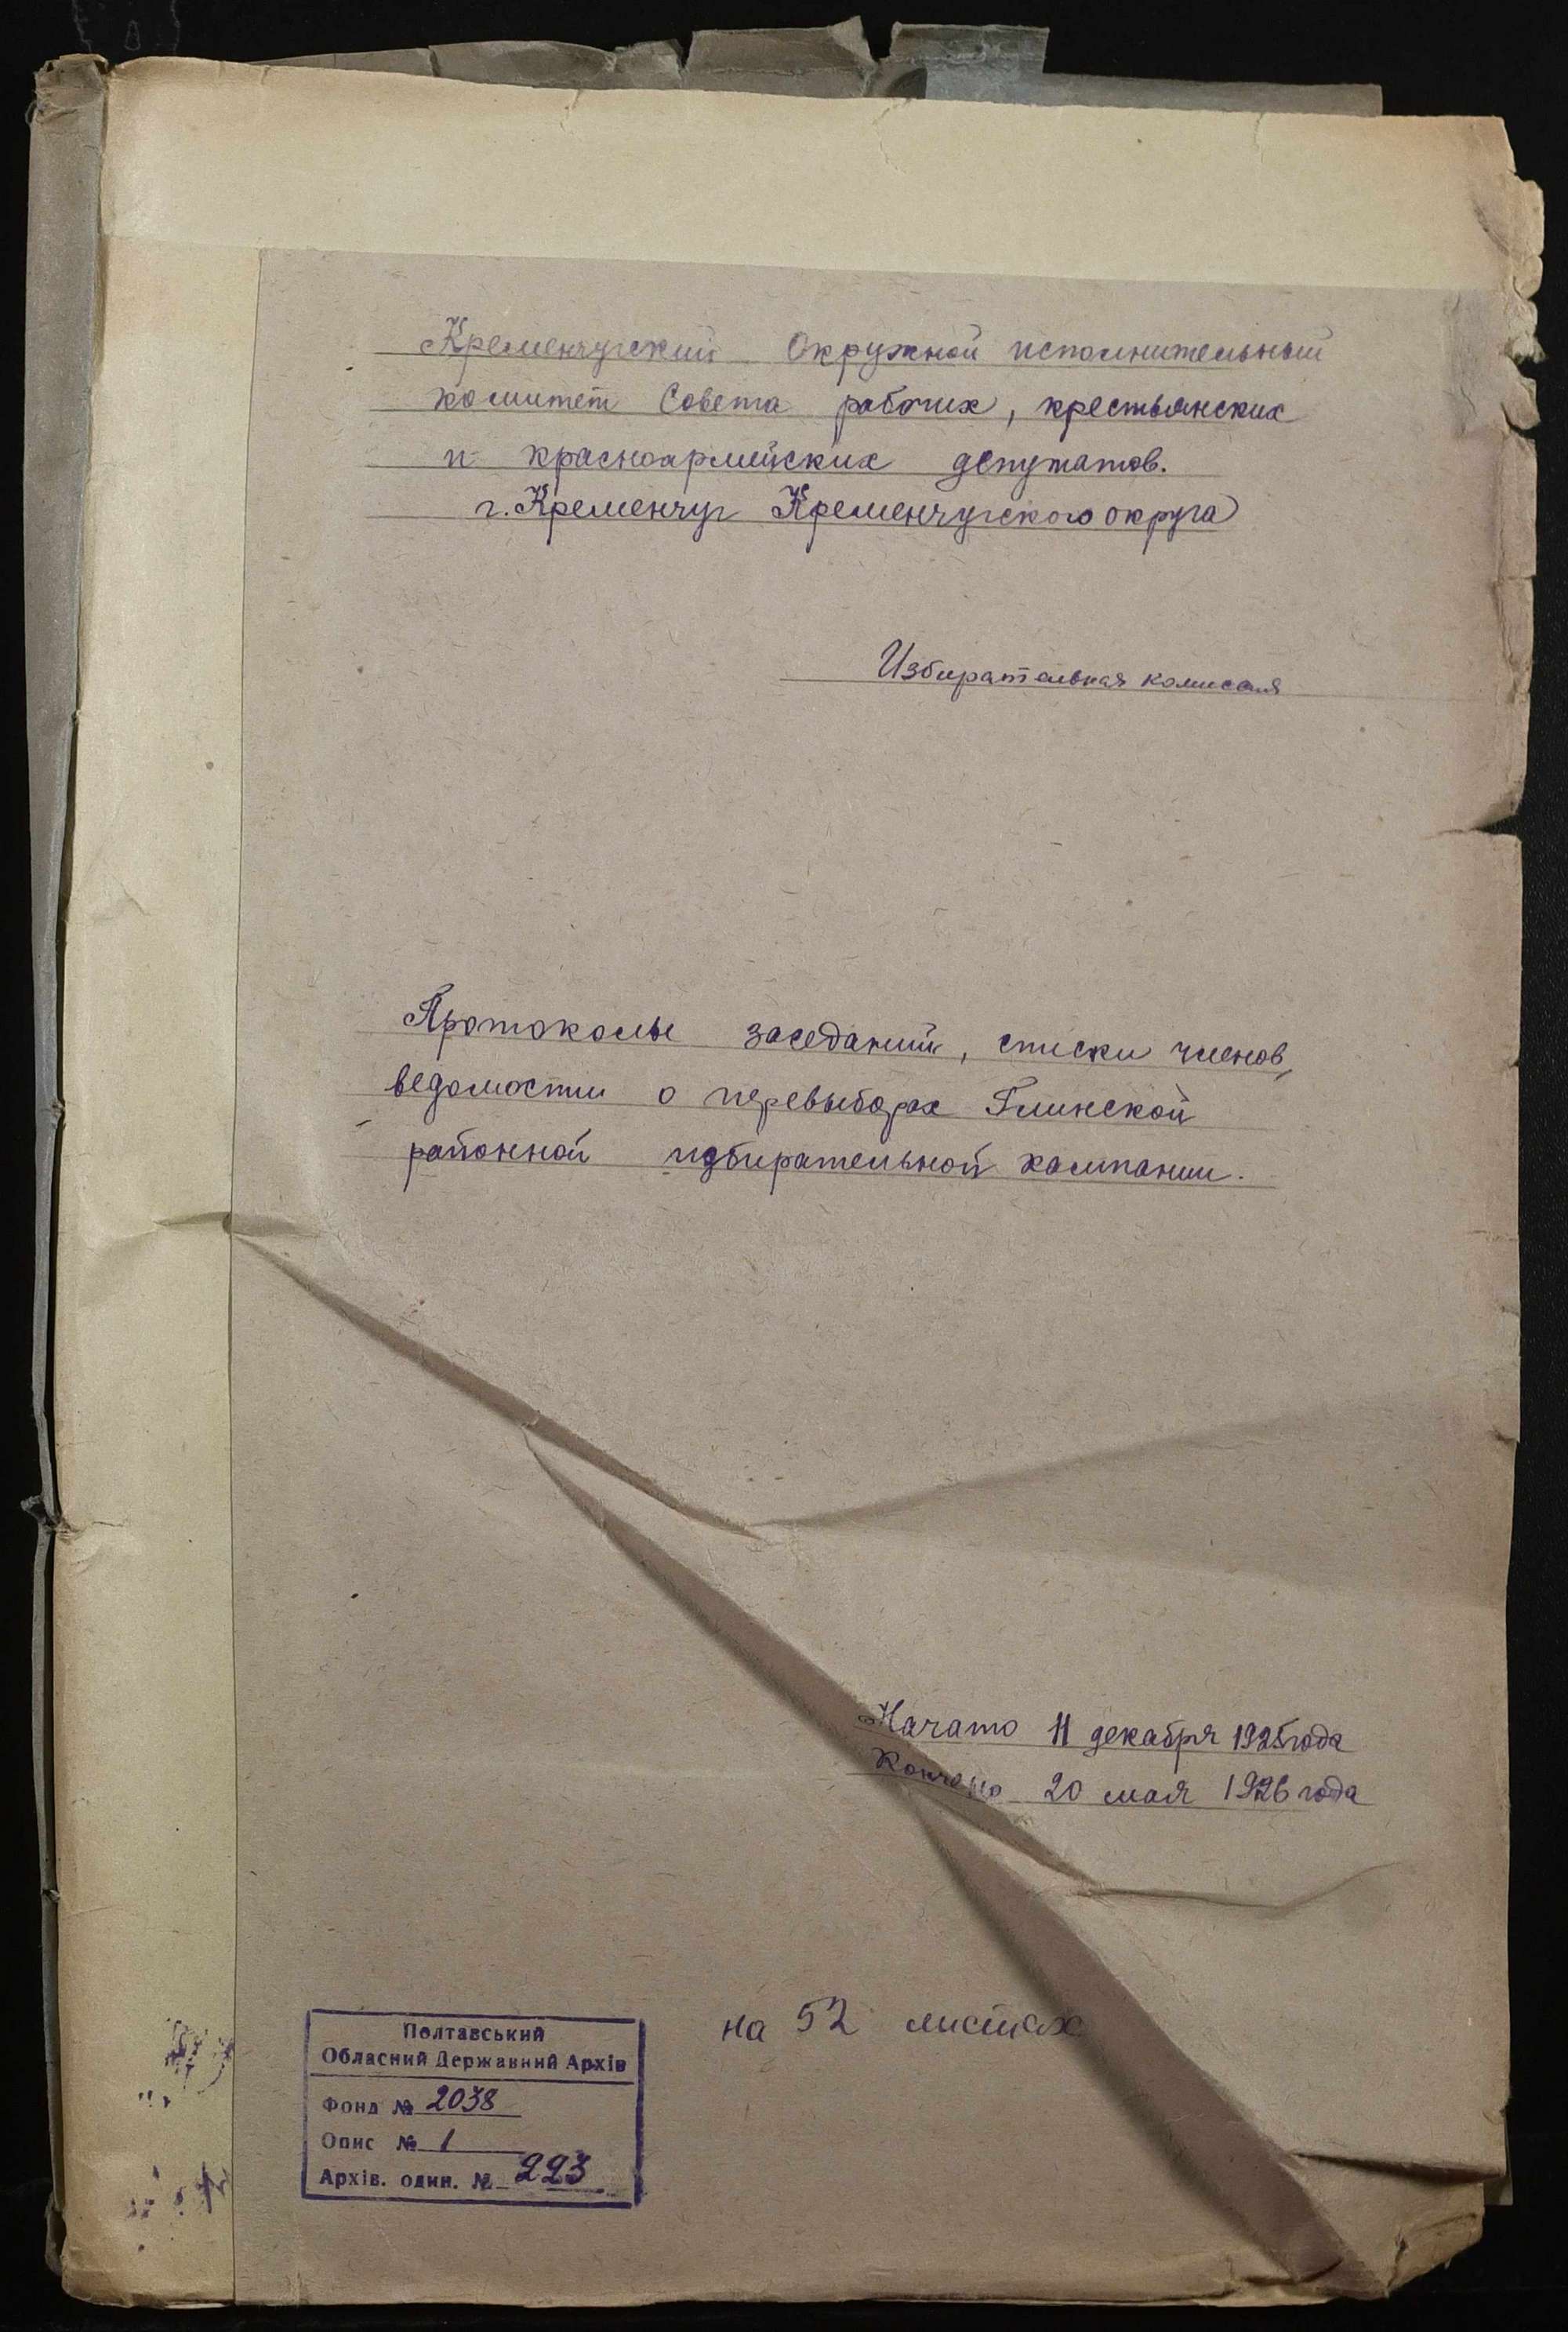 Кременчугский Окружной исполнительный
комитет Совета рабочих, крестьянских
и красноармейских депутатов.
г. Кременчуг Кременчугского округа
Избирательная комиссия
Протоколы заседаний, списки членов,
ведомости о перевыборах Глинской
районной избирательной кампании.
Начато 11 декабря 1925 года
Кончено 20 мая 1926 года
на 52 листах
Полтавський
Обласний Державний Архів
Фонд № 2038
Опис № 1
Архів. один. № 223